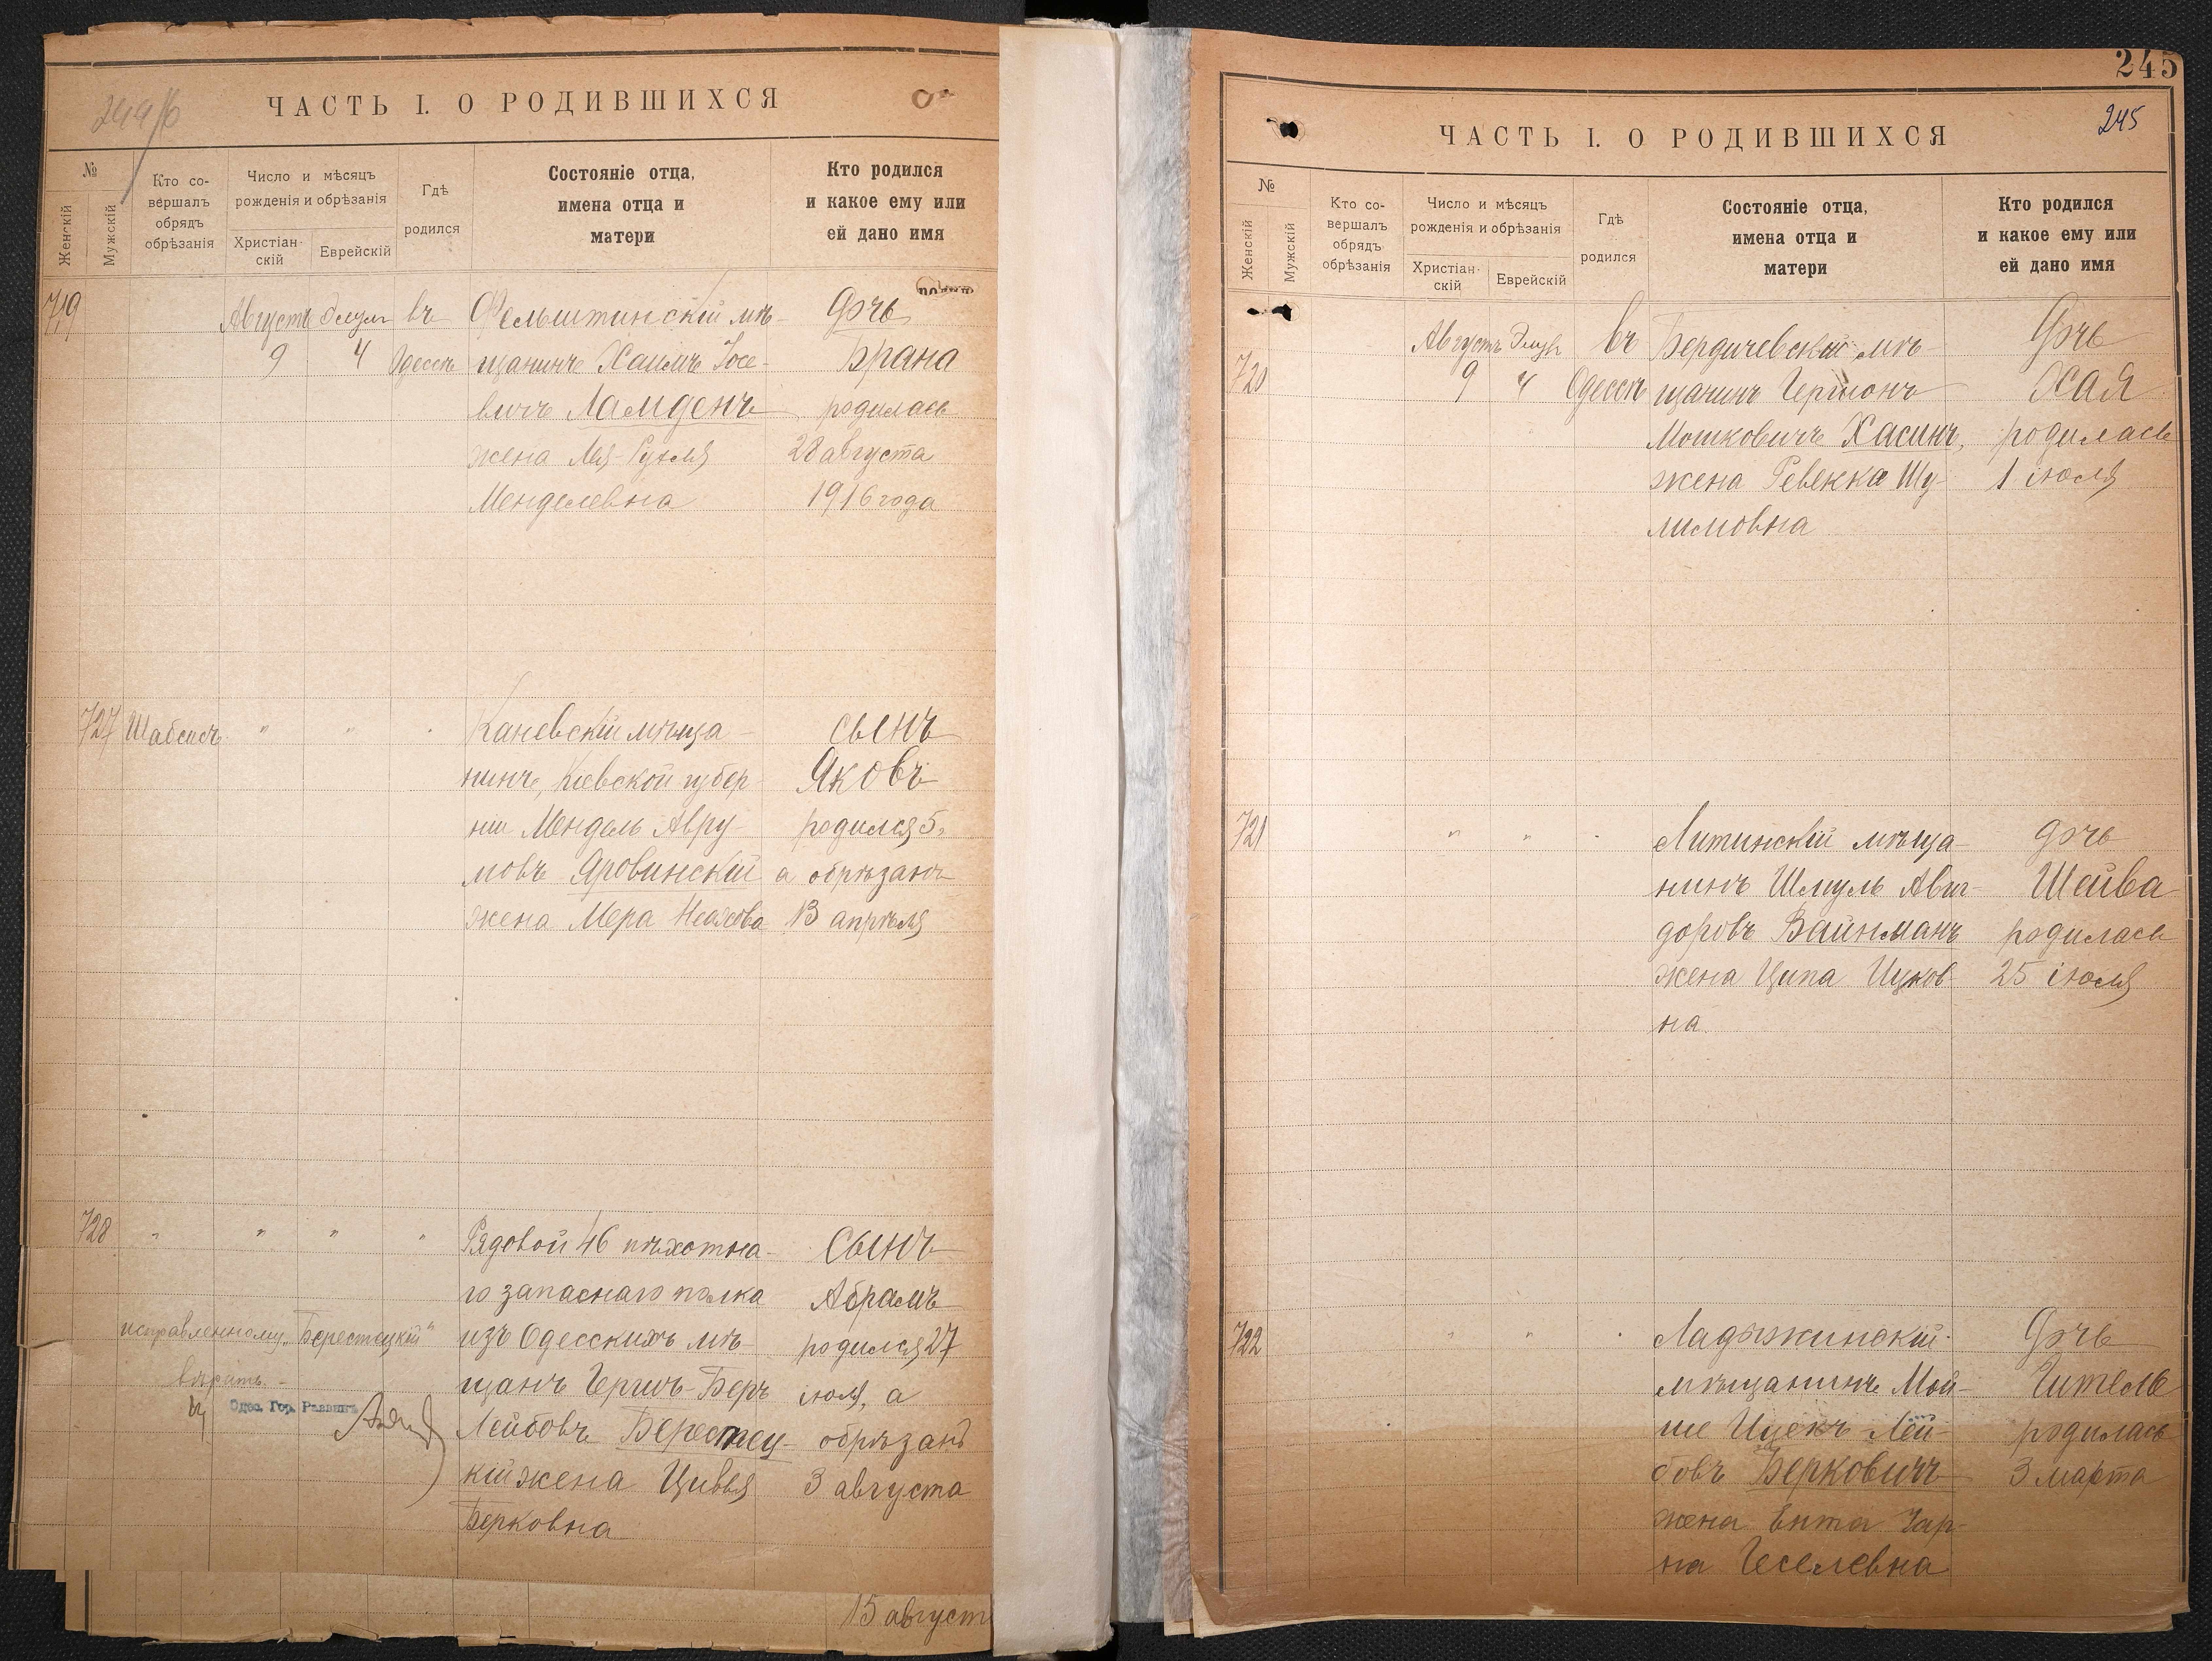 244/б
ЧАСТЬ I. О РОДИВШИХСЯ
№
Женскій
Мужскій
Кто со-
вершалъ
обрядъ
обрѣзанія
Число и мѣсяцъ
рожденія и обрѣзанія
Христіан-
скій
Еврейскій
Гдѣ
родился
Состояніе отца,
имена отца и
матери
Кто родился
и какое ему или
ей дано имя
719
Августъ
9
Элулъ
4
въ
Одессѣ
Фельштинскій мѣ-
щанинъ Хаимъ Іосе-
вичъ Ламденъ
жена Лея-Рухля
Менделевна
Дочь
Брана
родилась
28 августа
1916 года
727
Шабсисъ
" "
Каневскій мѣща-
нинъ, Кіевской губер-
ніи Мендель Авру-
мовъ Яровинскій
жена Мера
сынъ
Яковъ
родился 5,
а обрѣзанъ
13 апрѣля
728
" " " "
Рядовой 46 пѣхотна-
го запаснаго полка
изъ Одесскихъ мѣ-
щанъ Гершъ-Беръ
Лейбовъ Берестец-
кій жена Цивья
Берковна
сынъ
Абрамъ
родился 27
іюля, а
обрѣзанъ
3 августа
исправленному „Берестецкій"
вѣрить.
Одес. Гор. Раввинъ
15 август
245
245
ЧАСТЬ I. О РОДИВШИХСЯ
№
Женскій
Мужскій
Кто со-
вершалъ
обрядъ
обрѣзанія
Число и мѣсяцъ
рожденія и обрѣзанія
Христіан-
скій
Еврейскій
Гдѣ
родился
Состояніе отца,
имена отца и
матери
Кто родился
и какое ему или
ей дано имя
720
Августъ
9
Элулъ
4
въ
Одессѣ
Бердичевскій мѣ-
щанинъ Гершонъ
Мошковичъ Хасинъ,
жена Ревекка Шу-
лимовна
Дочь
Хая
родилась
1 іюля
721
" "
Литинскій мѣща-
нинъ Шмуль Авиг-
доровъ Вайнманъ
жена Ципа Ицков-
на
дочь
Шейва
родилась
25 іюля
722
" "
Ладыжинскій
мѣщанинъ Мой-
ше Ицекъ Лей-
бовъ Берковичъ
жена Ента Чар-
на Геселевна
Дочь
Гителе
родилась
3 марта